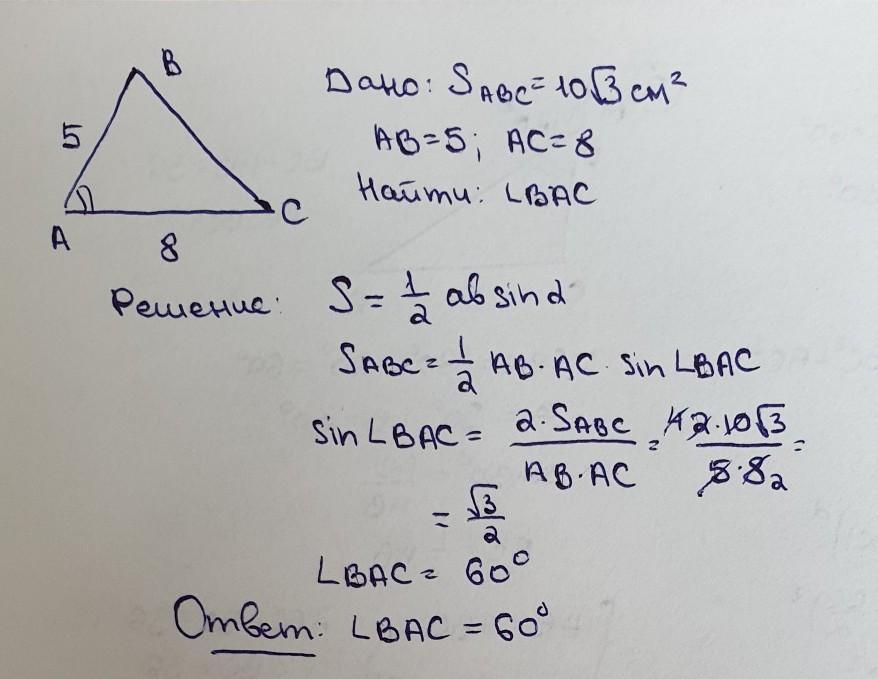 B
5
A
8
C
Дано: S ABC = 10√3 см²
AB=5; AC=8
Найти: ∠BAC
Решение: S = 1/2 ab sin α
S ABC = 1/2 AB · AC · sin ∠BAC
sin ∠BAC = 2·S ABC / AB·AC = 2·10√3 / 5·8 2 =
= √3/2
∠BAC = 60°
Ответ: ∠BAC = 60°